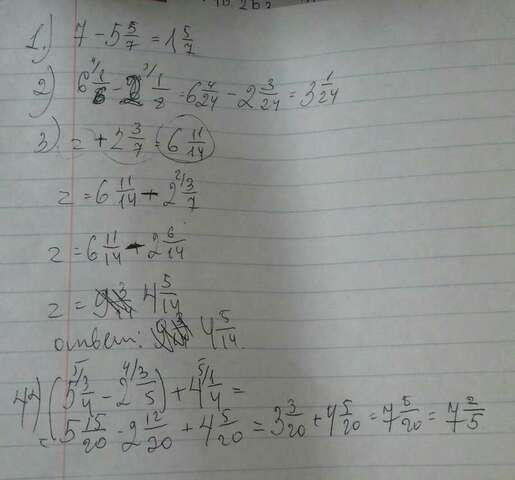 1.) 7 - 5 5/7 = 1 5/7
2) 6 1/6 - 2 1/8 = 6 4/24 - 2 3/24 = 3 1/24
3) z + 2 3/7 = 6 11/14
z = 6 11/14 - 2 3/7
z = 6 11/14 - 2 6/14
z = 4 5/14
ответ: 4 5/14.
4) (5 3/4 - 2 3/5) + 4 1/4 =
= 5 15/20 - 2 12/20 + 4 5/20 = 3 3/20 + 4 5/20 = 7 5/20 = 7 2/5